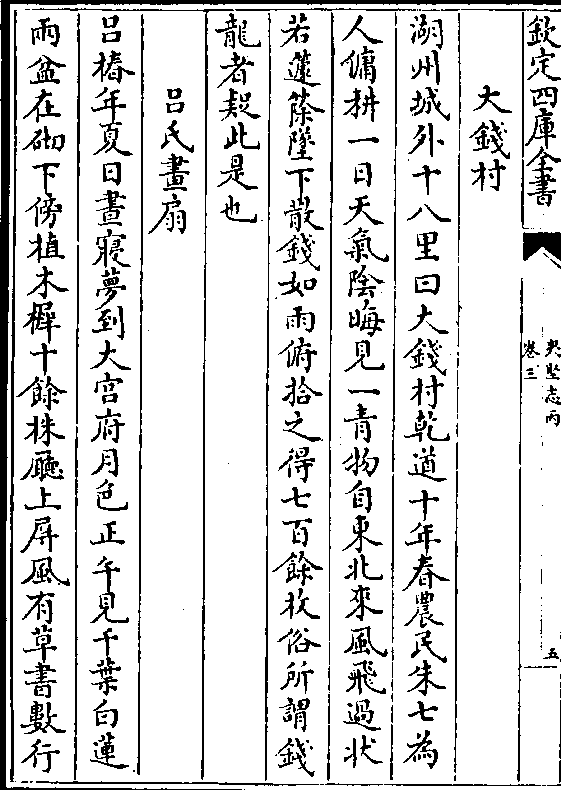 欽定四庫全書
夷堅志丙
卷三
五
大錢村
湖州城外十八里曰大錢村乾道十年春農民朱七為
人傭耕一日天氣陰晦見一青物自東北來風飛過狀
若蘧蒢墜下散錢如雨俯拾之得七百餘枚俗所謂錢
龍者疑此是也
呂氏畫扇
呂椿年夏日晝寢夢到大宫府月色正午見千葉白蓮
兩盆在砌下傍植木樨十餘株廳上屏風有草書數行